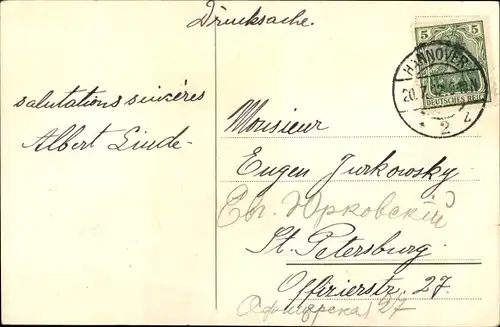 Drucksache.
5 5
HANNOVER
20.7.12.6-7 N
DEUTSCHES REICH
* 2 z
salutations sincères
Albert Linde-
Monsieur
Eugen Jurkowsky
Евг. Юрковскій
St. Petersburg.
Offizierstr. 27
Офицерская 27